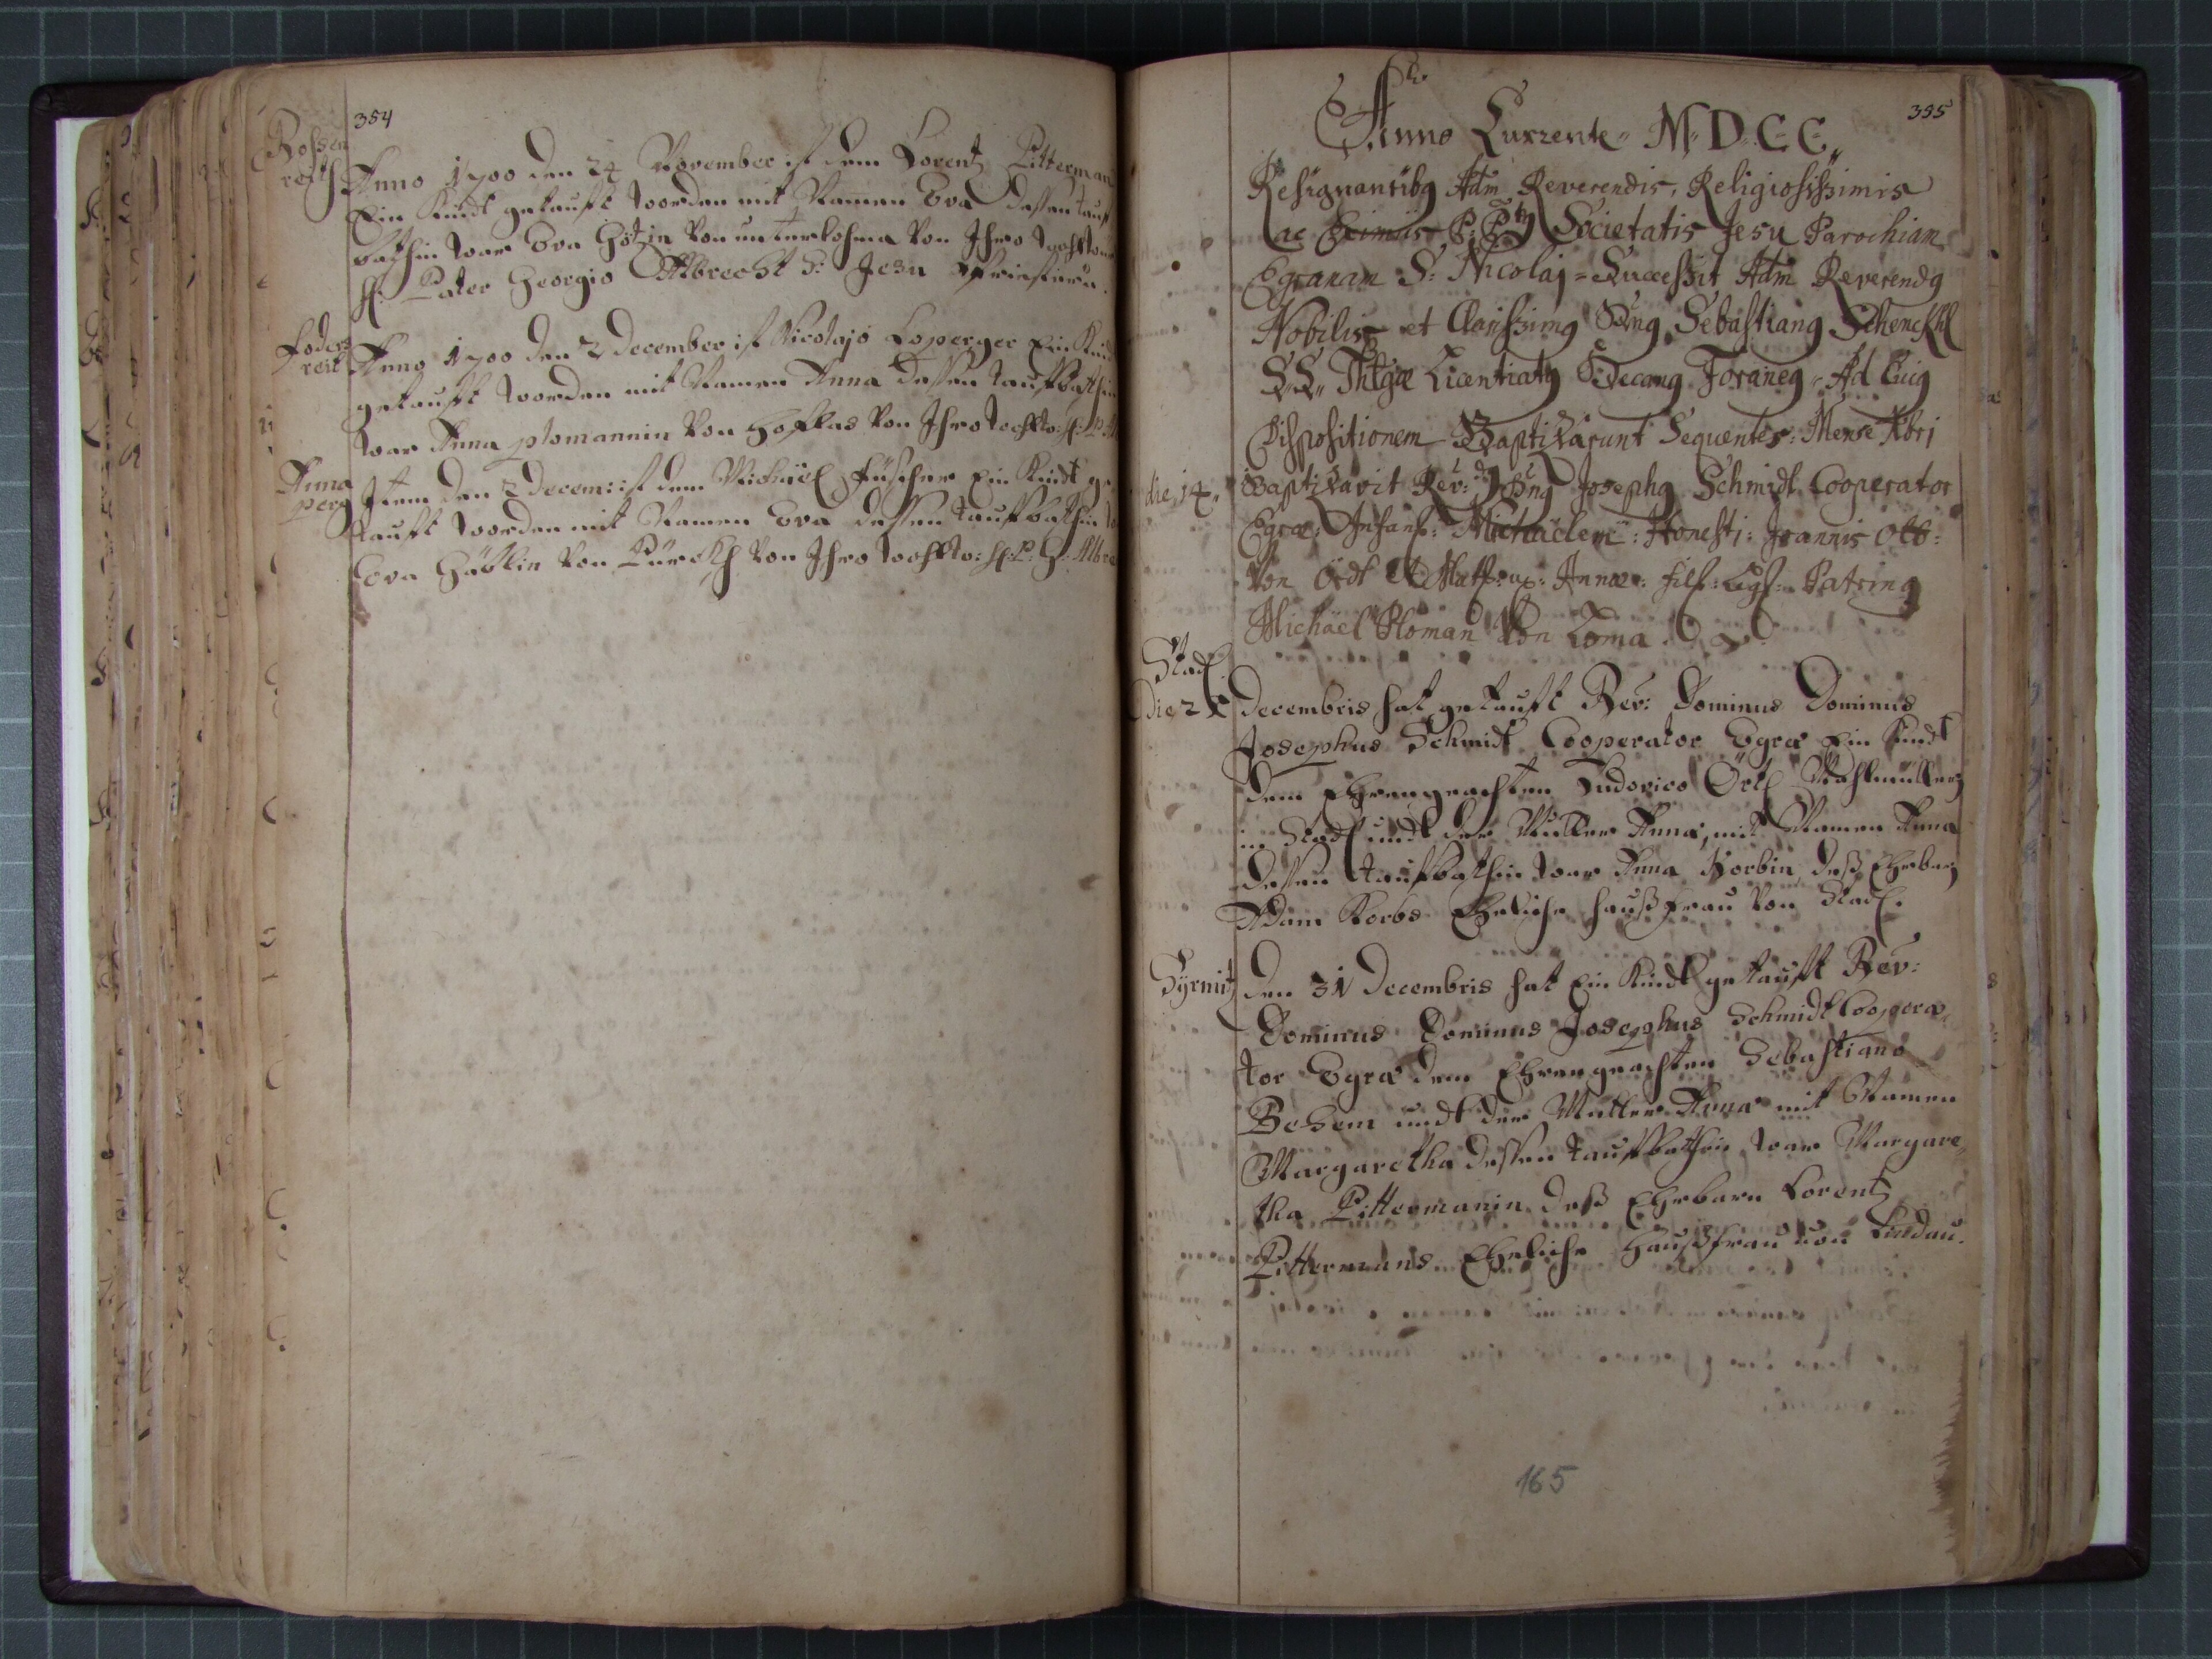 354
Rossen
reith
Anno 1700 den 24 November ist dem Lorentz Pitterman
Ein Kindt getaufft worden mit Namen Eva dessen tauff
bathin war Eva Götzin von unterlohma von Ihro wohlw
H: Pater Georgio Albrecht S: Jesu
Foders
reit
Anno 1700 den 2 December ist Nicolajo Loperger Ein Kind
getaufft worden mit Namen Anna dessen tauffbathin
war Anna plomannin von von Ihro wohlw: H: P:
Anna
perg
Item den 2 decem: ist dem Michäel Füscher Ein Kindt ge
taufft worden mit Namen Eva dessen tauffbathin
Eva von von Ihro wohlw: H: P: G: Albre
355
Anno Currente M D C C
Resignantibg Adm Reverendis, Religiosissimis
ac Eximiis P: P: Societatis Jesu Parochiam
Egranam S: Nicolaj = Successit Adm Reverendg
Nobilis et Clarissimg Dng Sebastiang Schenckhl
S.S. Thlgiæ Licentiatg Decang Foraneg Ad Cuig
Dispositionem Baptizarunt Sequentes: Mense Xbrj
die 14
Baptizavit Rev: dg Dng Josephg Schmidt Cooperator
Egræ: Infant: Michäelem: Honesti: Joannis Ott:
von Ödt et Matt: ux: Annæ: fil: Lgt: Patring
Michäel Ploman Von Loma
Stadl
die 2
Decembris hat getaufft Rev: Dominus Dominus
Josephus Schmidt Cooperator Egræ Ein Kindt
dem Ehrengeachten Ludovico Örtl Mahlmüllern
in Stadl undt der Mutter Anna, mit Namen Anna
dessen tauffbathin war Anna Korbin, deß Ehrbarn
Adam Korbs Eheliche haußfrau von Stadl.
Syrmitz
den 31 Decembris hat Ein Kindt getaufft Rev:
Dominus Dominus Josephus Schmidt Coopera
tor Egræ dem Ehrengeachten Sebastiano
Behem undt der Mutter Anna mit Namen
Margaretha dessen tauffbathin war Margare
tha Pittermanin deß Ehrbarn Lorentz
Pittermans Eheliche haußfrau von Lindau.
165